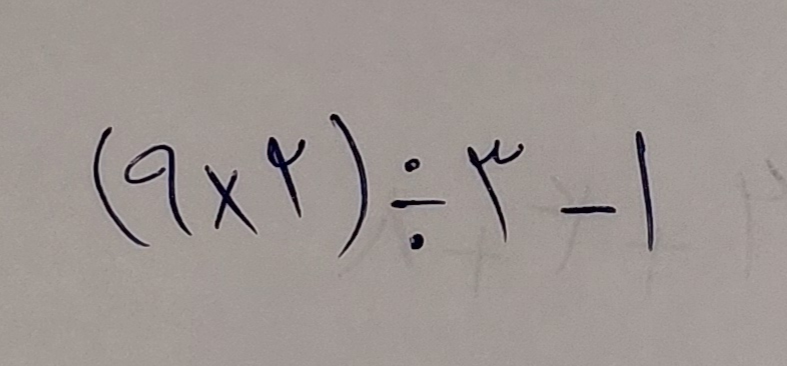 (۹×۲)÷۳-۱